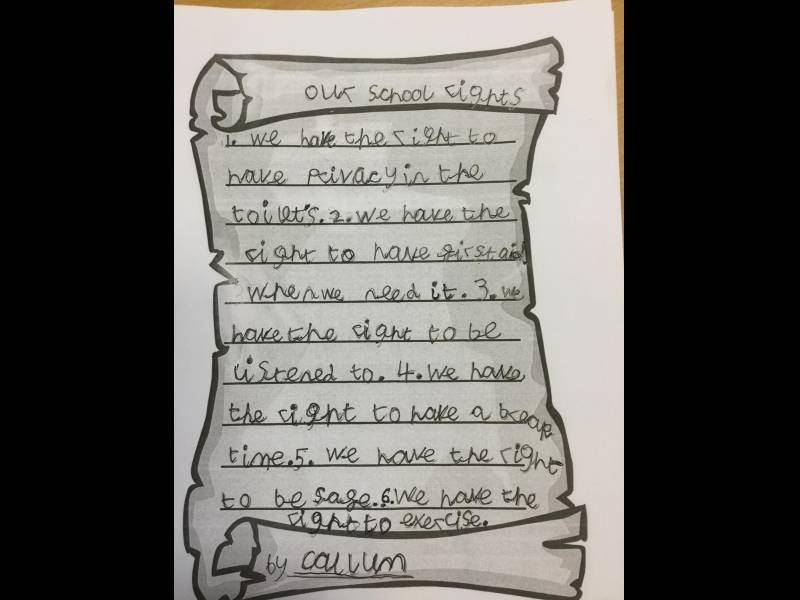 our school rights
1. we have the right to
have privacy in the
toilet's. 2. we have the
right to have first aid
when we need it. 3. we
have the right to be
listened to. 4. we have
the right to have a break
time. 5. we have the right
to be safe. 6. we have the
right to exercise.
by callum